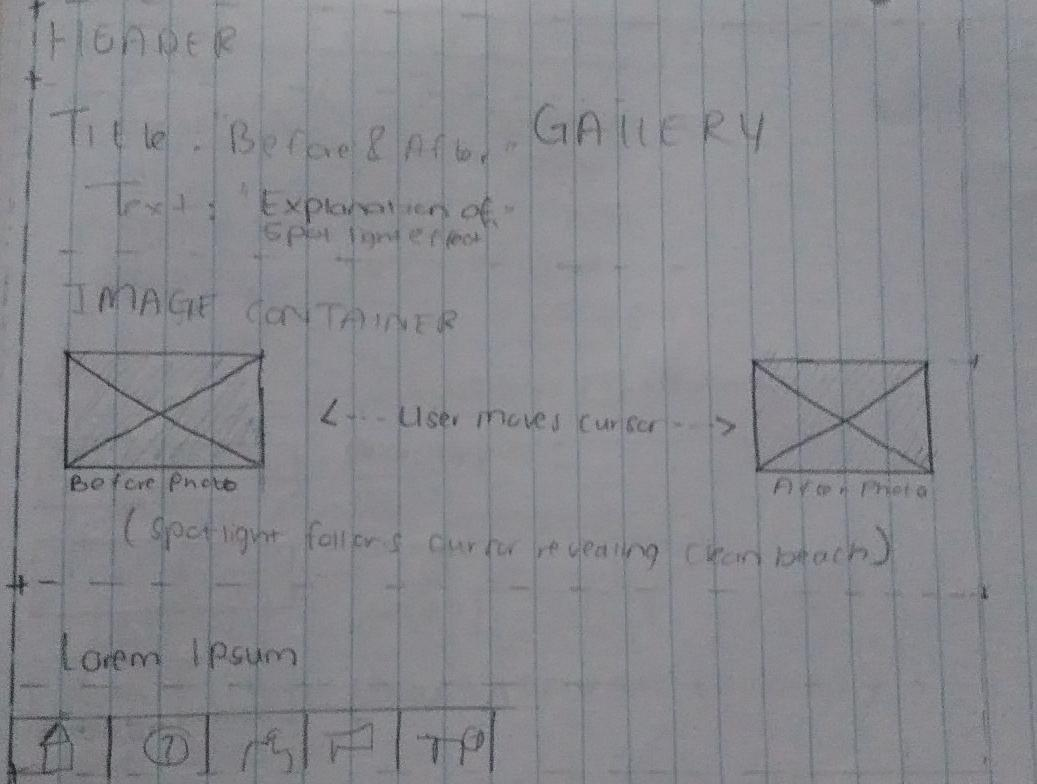 HEADER
Title. "Before & After" GALLERY
Text: "Explanation of
spot light effect"
IMAGE CONTAINER
<--- User moves cursor --->
Before Photo
After Photo
(Spotlight follows cursor revealing clean beach)
Lorem Ipsum
?